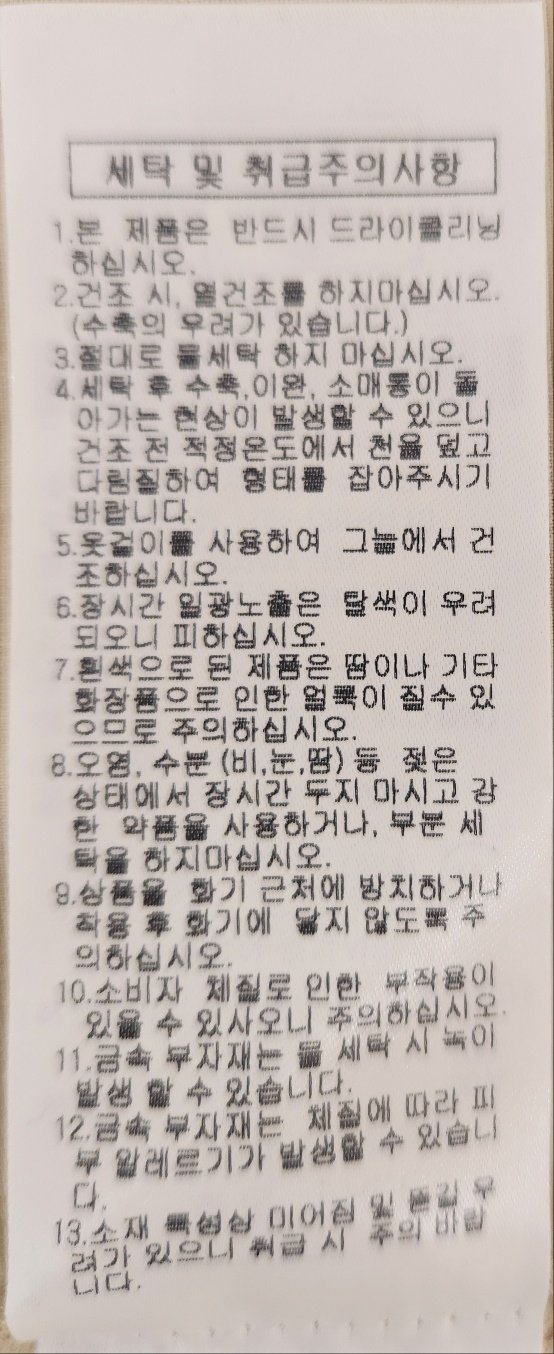 세탁 및 취급주의사항
1.본 제품은 반드시 드라이클리닝
하십시오.
2.건조 시, 열건조를 하지마십시오.
(수축의 우려가 있습니다.)
3.절대로 물세탁 하지 마십시오.
4.세탁 후 수축,이완, 소매통이 돌
아가는 현상이 발생할 수 있으니
건조 전 적정온도에서 천을 덮고
다림질하여 형태를 잡아주시기
바랍니다.
5.옷걸이를 사용하여 그늘에서 건
조하십시오.
6.장시간 일광노출은 탈색이 우려
되오니 피하십시오.
7.흰색으로 된 제품은 땀이나 기타
화장품으로 인한 얼룩이 질수 있
으므로 주의하십시오.
8.오염, 수분 (비,눈,땀) 등 젖은
상태에서 장시간 두지 마시고 강
한 약품을 사용하거나, 부분 세
탁을 하지마십시오.
9.상품을 화기 근처에 방치하거나
착용 후 화기에 닿지 않도록 주
의하십시오.
10.소비자 체질로 인한 부작용이
있을 수 있사오니 주의하십시오.
11.금속 부자재는 물 세탁 시 녹이
발생 할 수 있습니다.
12.금속 부자재는 체질에 따라 피
부 알레르기가 발생할 수 있습니
다.
13.소재 특성상 미어짐 및 뜯길 우
려가 있으니 취급 시 주의 바랍
니다.